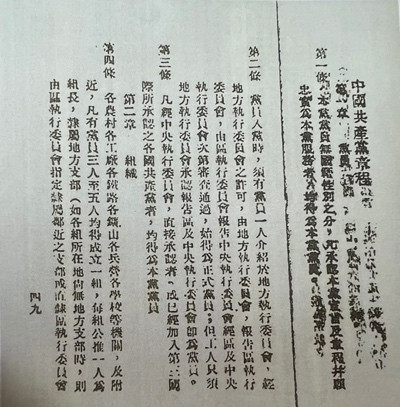 中國共產黨章程
第一章 黨員
第一條 本黨黨員無國籍性別之分,凡承認本黨宣言及章程并願
忠實爲本黨服務者,均得爲本黨黨員。
第二條 黨員入黨時,須有黨員一人介紹於地方執行委員會,經
地方執行委員會之許可,由地方執行委員會,報告區執行
委員會,由區執行委員會報告中央執行委員會經區及中央
執行委員會次第審查通過,始得爲正式黨員;但工人只須
地方執行委員會承認報告區及中央執行委員會即爲黨員。
第三條 凡經中央執行委員會,直接承認者,或已經加入第三國
際所承認之各國共產黨者,均得爲本黨黨員
第二章 組織
第四條 各農村各工廠各鐵路各鑛山各兵營各學校等機關,及附
近,凡有黨員三人至五人均得成立一組,每組公推一人爲
組長,隸屬地方支部(如各組所在地尚無地方支部時,則
由區執行委員會指定隸屬鄰近之支部或直隸區執行委員會
四九